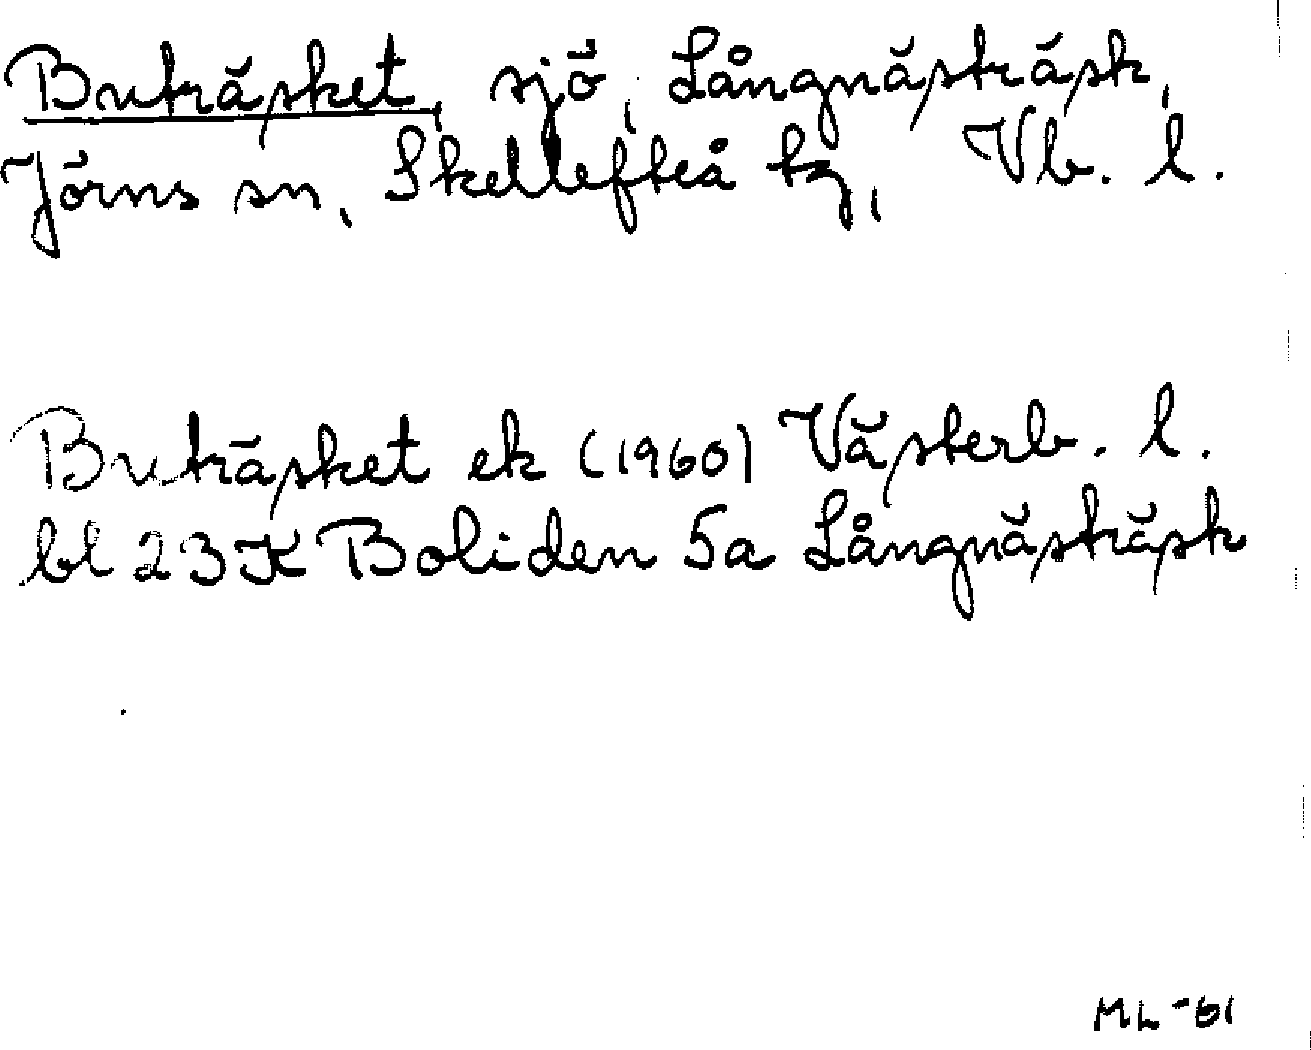 Buträsket, sjö, Långnästräsk,
Jörns sn, Skellefteå tg, Vb. l.
Buträsket ek (1960) Västerb. l.
bl 23K Boliden 5a Långnästräsk
ML-61